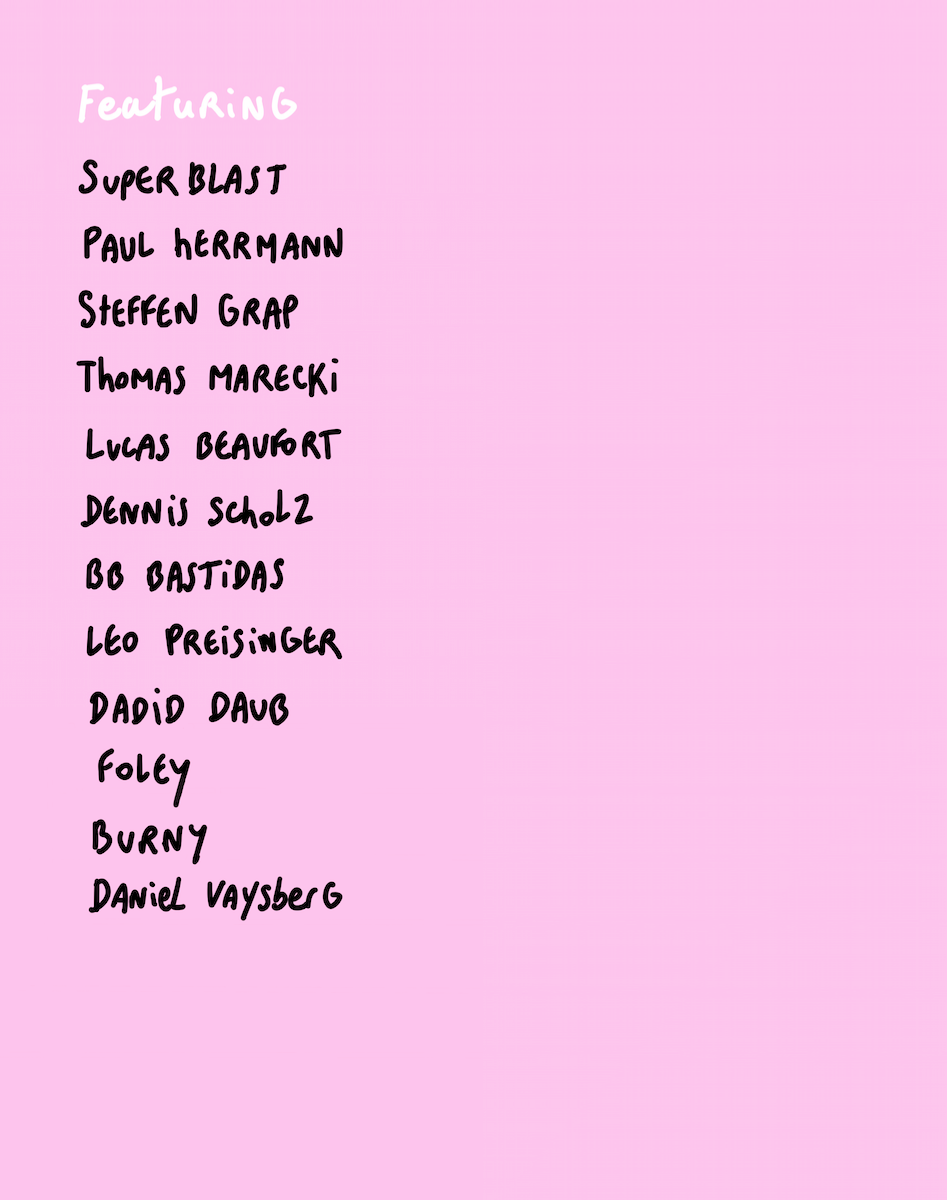 Featuring
SUPERBLAST
PAUL HERRMANN
STEFFEN GRAP
THOMAS MARECKI
LUCAS BEAUFORT
DENNIS SCHOLZ
BB BASTIDAS
LEO PREISINGER
DADID DAUB
FOLEY
BURNY
DANIEL VAYSBERG